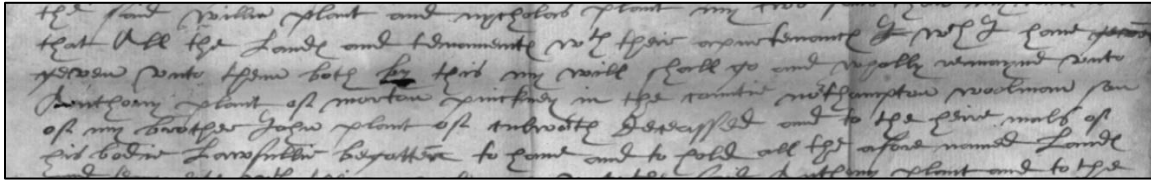 the said willm plant and nycholas plant my two
that All the Landℯ and tenementℯ wth their apurtenancℯ wch I haue
geven vnto theme both by this my will shall go and wholly remayne vnto
Anthony plant of morton pinckney in the countie northampton woolman son
of my brother John plant of cubworth deceassed and to the heire male of
his bodie Lawfullie begotten to haue and to hold all the afore named Landℯ
plant and to the